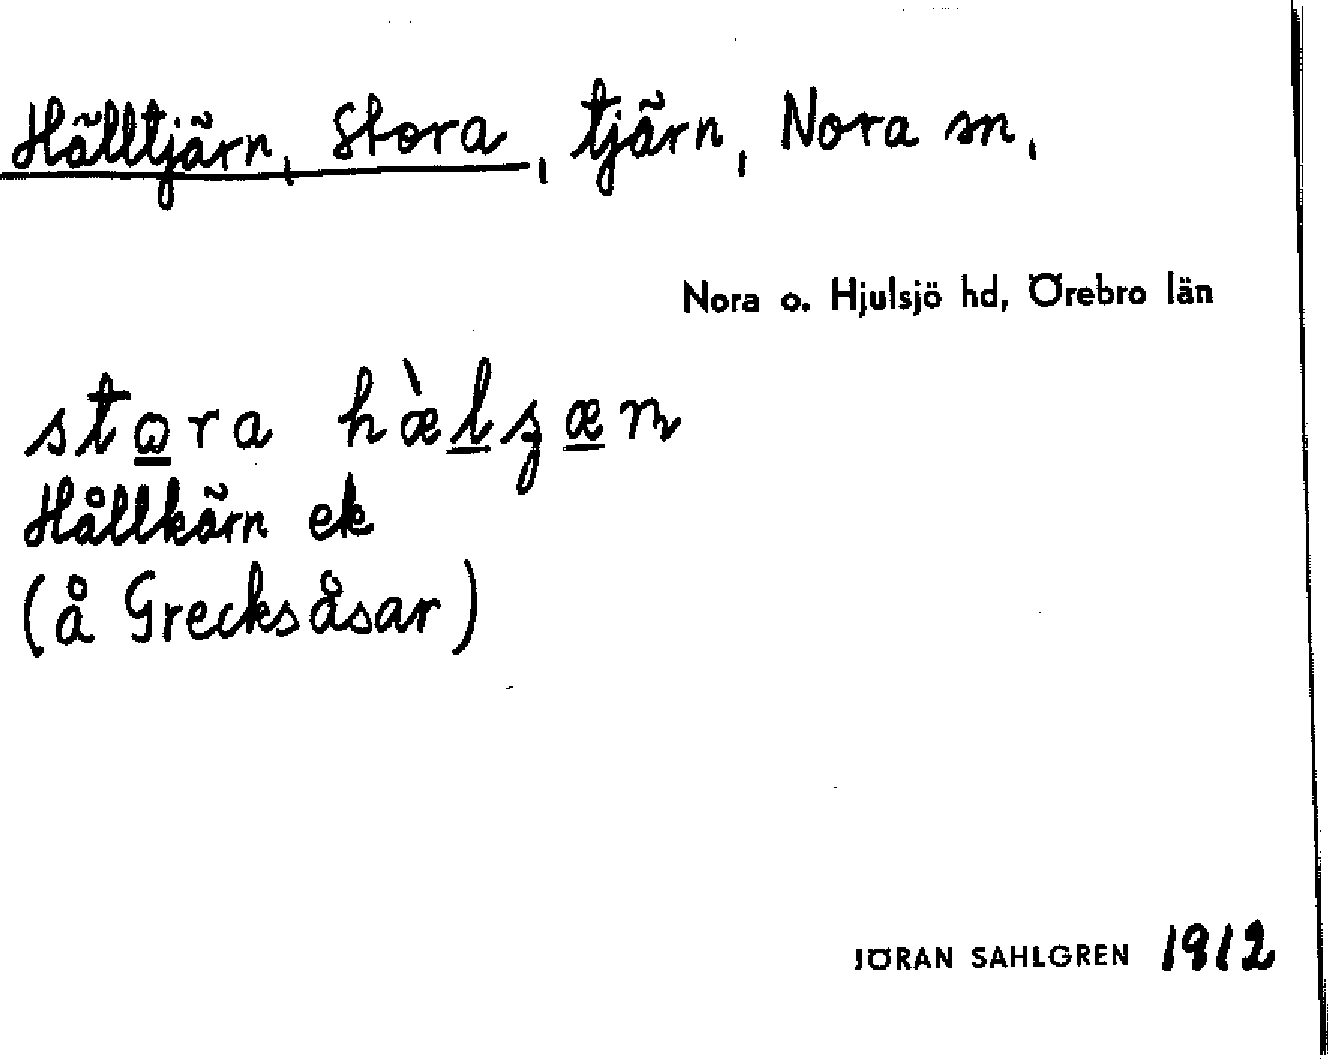 Hälltjärn, Stora, tjärn, Nora sn.
Nora o. Hjulsjö hd, Örebro län
stora
Hållkärn ek
(å Grecksåsar)
JÖRAN SAHLGREN 1912